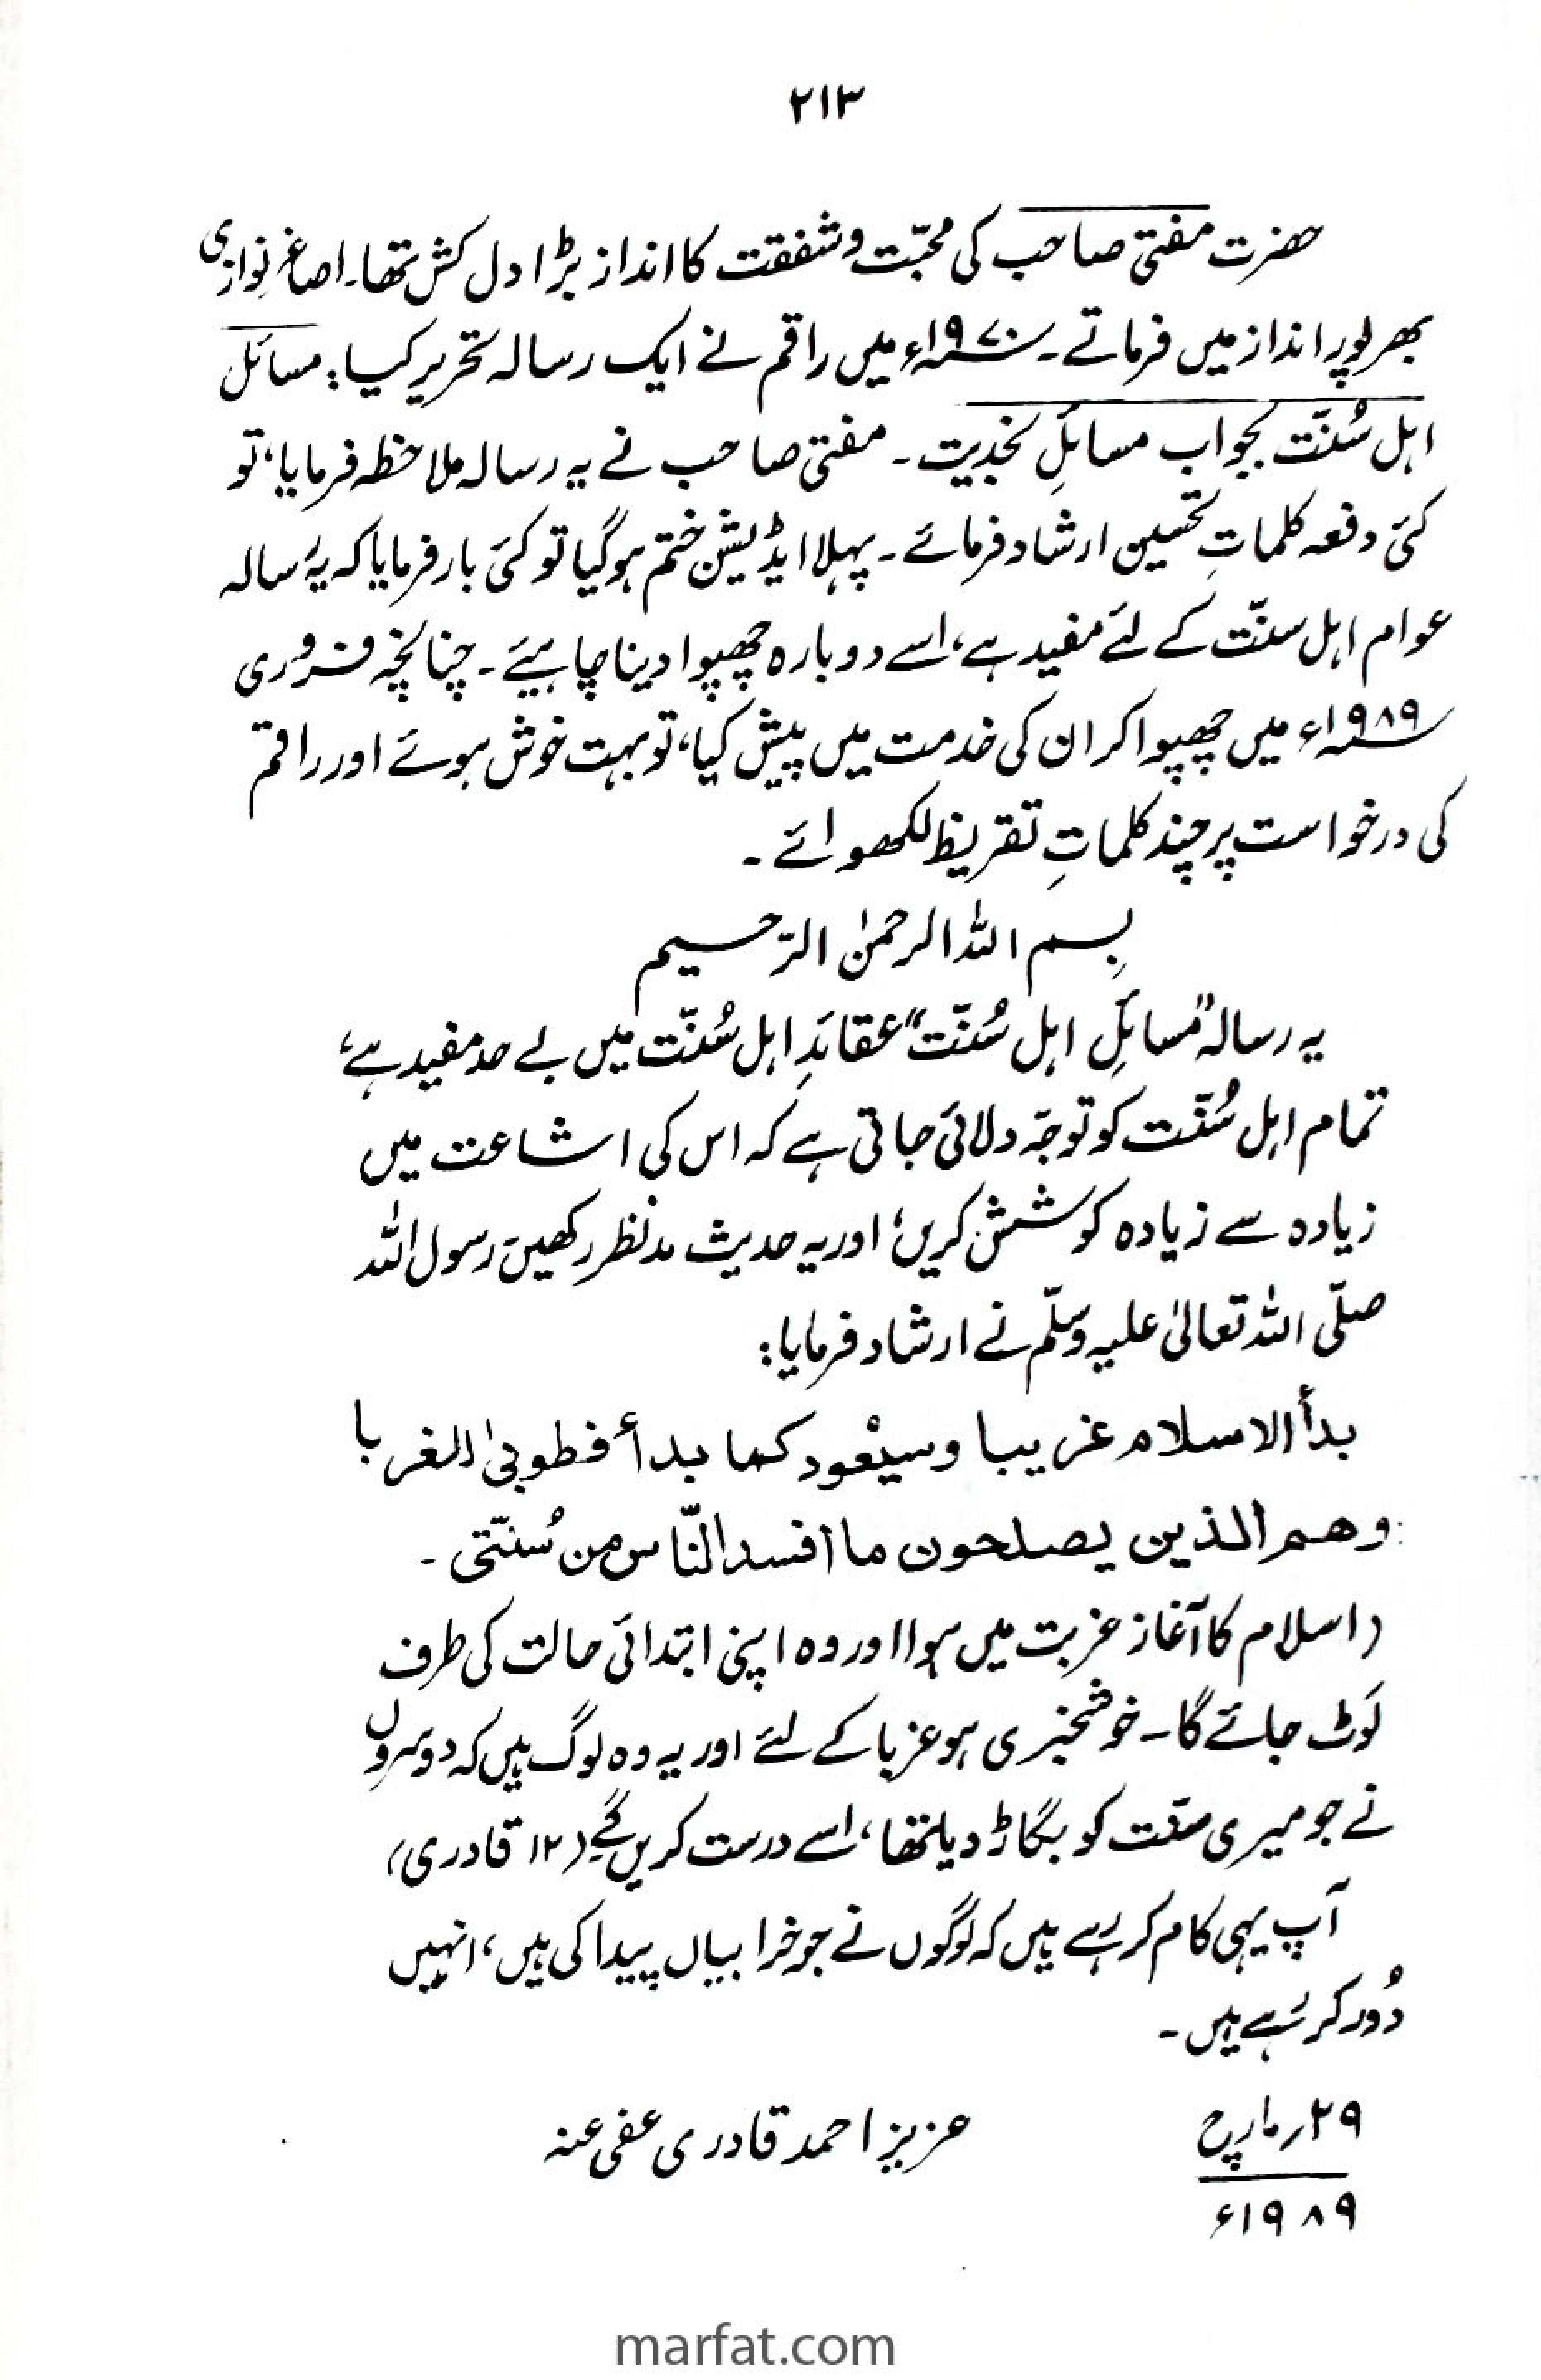 ۲۱۳
حضرت مفتی صاحب کی محبّت و شفقت کا انداز بڑا دل کش تھا۔ اصاغر نوازی
بھرپور انداز میں فرماتے۔ ۱۹۷۰ء میں راقم نے ایک رسالہ تحریر کیا: مسائل
اہل سُنّت بجواب مسائلِ نجدیت۔ مفتی صاحب نے یہ رسالہ ملاحظہ فرمایا، تو
کئی دفعہ کلماتِ تحسین ارشاد فرمائے۔ پہلا ایڈیشن ختم ہوگیا تو کئی بار فرمایا کہ یہ رسالہ
عوام اہل سنّت کے لئے مفید ہے، اسے دوبارہ چھپوا دینا چاہیئے۔ چنانچہ فروری
۱۹۸۹ء میں چھپوا کر ان کی خدمت میں پیش کیا، تو بہت خوش ہوئے اور راقم
کی درخواست پر چند کلماتِ تقریظ لکھوائے۔
بِسم اللہ الرحمٰن الرّحیم
یہ رسالہ "مسائلِ اہل سُنّت" عقائدِ اہل سُنّت میں بے حد مفید ہے،
تمام اہل سُنّت کو توجّہ دلائی جاتی ہے کہ اس کی اشاعت میں
زیادہ سے زیادہ کوشش کریں؛ اور یہ حدیث مدنظر رکھیں رسول اللہ
صلّی اللہ تعالیٰ علیہ وسلّم نے ارشاد فرمایا:
بدأ الاسلام غریبا وسیعْود کما بدأ فطوبیٰ للغربا
وھم الذین یصلحون ما افسد النّاس من سُنّتی۔
(اسلام کا آغاز غربت میں ہوا اور وہ اپنی ابتدائی حالت کی طرف
لَوٹ جائے گا۔ خوشخبری ہو غربا کے لئے اور یہ وہ لوگ ہیں کہ دوسروں
نے جو میری سنّت کو بگاڑ دیا تھا، اسے درست کریں گے (۱۲ قادری)
آپ یہی کام کر رہے ہیں کہ لوگوں نے جو خرابیاں پیدا کی ہیں، انہیں
دُور کر رہے ہیں۔
۲۹؍مارچ عزیز احمد قادری عفی عنہ
۱۹۸۹ء
marfat.com